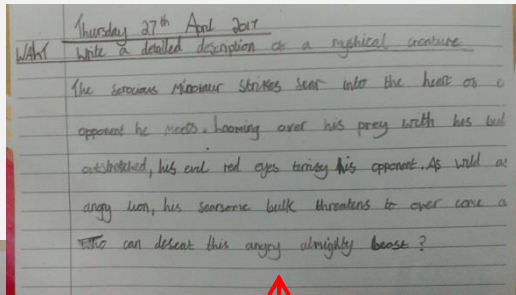 Thursday 27th April 2017
WAHT Write a detailed description of a mythical creature
The ferocious Minotaur strikes fear into the heart of
opponent he meets. Looming over his prey with his
outstretched, his evil red eyes terrify his opponent. As wild
angry lion, his fearsome bulk threatens to over come a
Who can defeat this angry almighty beast?